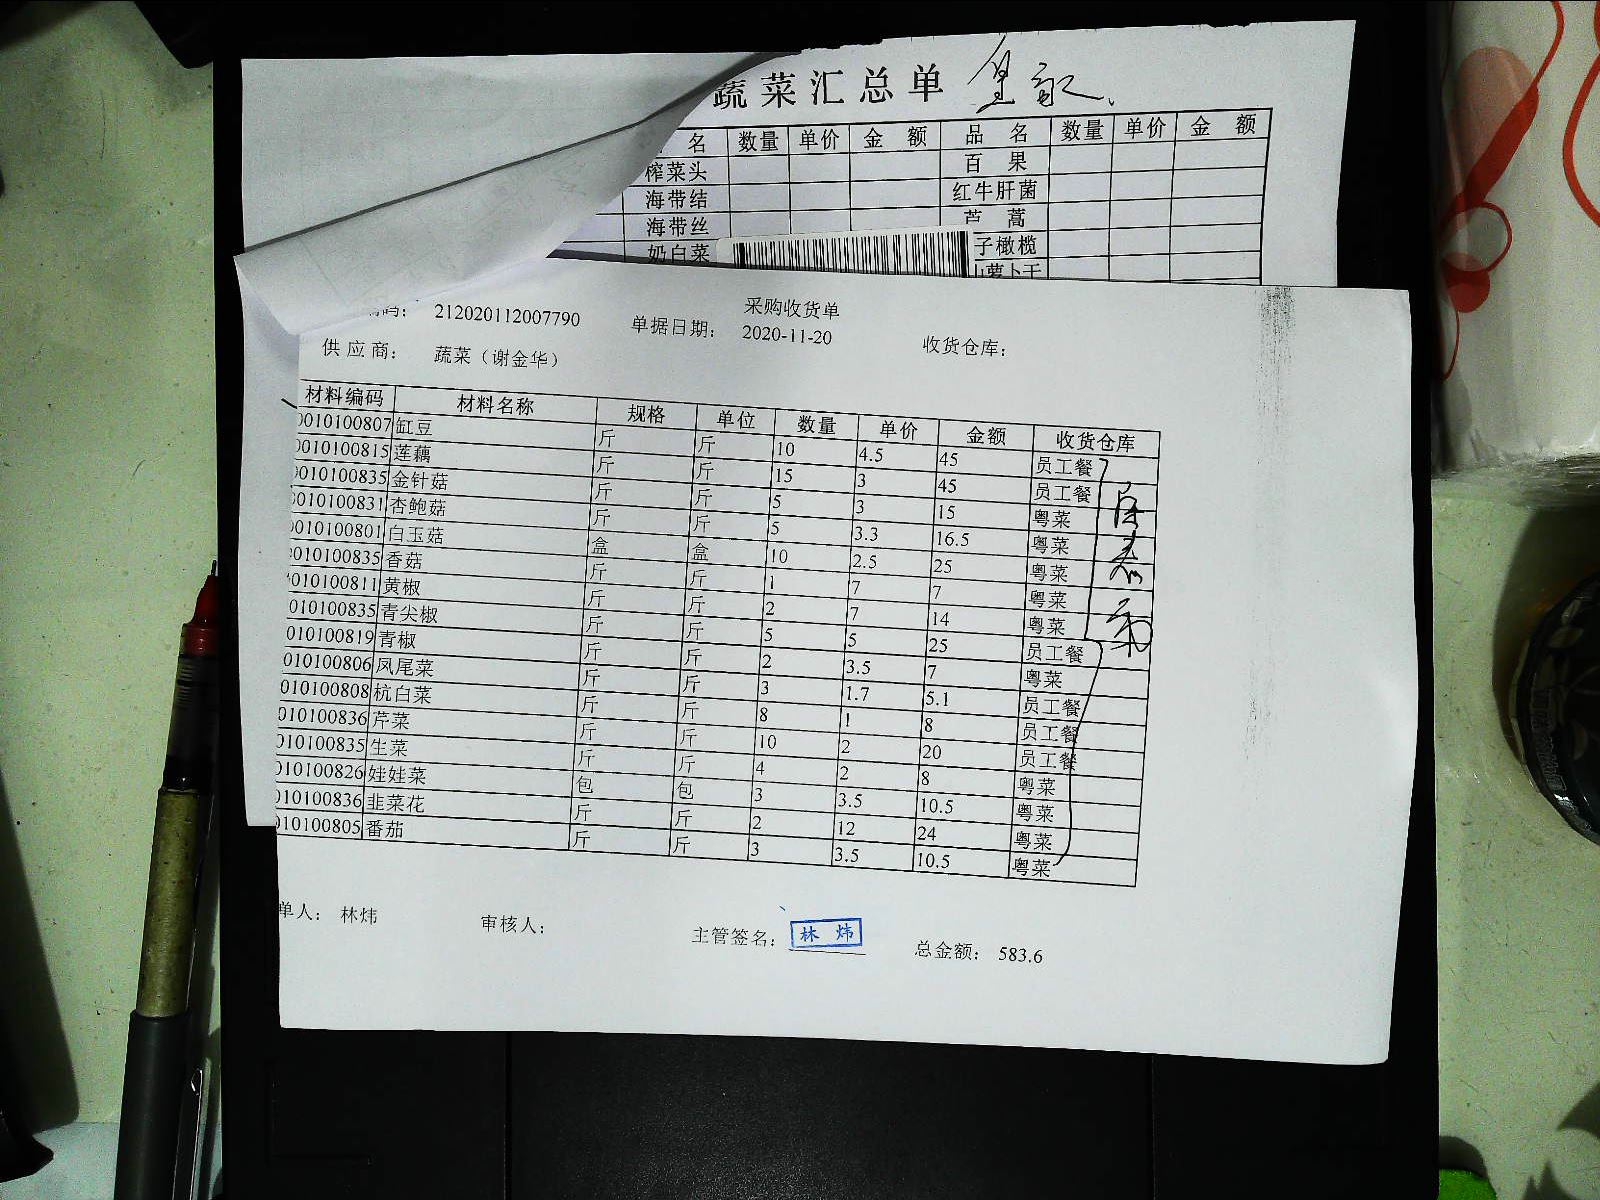 蔬菜汇总单
名 数量 单价 金 额 品 名 数量 单价 金 额
榨菜头 百 果
海带结 红牛肝菌
海带丝 芦 蒿
奶白菜 子橄榄
萝卜干
采购收货单
编码: 212020112007790 单据日期: 2020-11-20 收货仓库:
供应商: 蔬菜（谢金华）
材料编码 材料名称 规格 单位 数量 单价 金额 收货仓库
0010100807 缸豆 斤 斤 10 4.5 45 员工餐
0010100815 莲藕 斤 斤 15 3 45 员工餐
0010100835 金针菇 斤 斤 5 3 15 粤菜
0010100831 杏鲍菇 斤 斤 5 3.3 16.5 粤菜
0010100801 白玉菇 盒 盒 10 2.5 25 粤菜
010100835 香菇 斤 斤 1 7 7 粤菜
010100811 黄椒 斤 斤 2 7 14 粤菜
010100835 青尖椒 斤 斤 5 5 25 员工餐
010100819 青椒 斤 斤 2 3.5 7 粤菜
010100806 凤尾菜 斤 斤 3 1.7 5.1 员工餐
010100808 杭白菜 斤 斤 8 1 8 员工餐
010100836 芹菜 斤 斤 10 2 20 员工餐
010100835 生菜 斤 斤 4 2 8 粤菜
010100826 娃娃菜 包 包 3 3.5 10.5 粤菜
010100836 韭菜花 斤 斤 2 12 24 粤菜
010100805 番茄 斤 斤 3 3.5 10.5 粤菜
单人: 林炜 审核人: 主管签名: 林 炜 总金额: 583.6